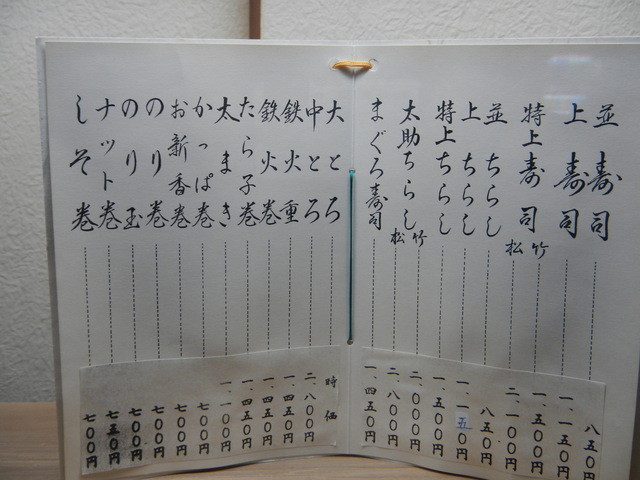 並寿司 八五〇円
上寿司 一、一五〇円
特上寿司 竹 一、五〇〇円
松 二、一〇〇円
並ちらし 八五〇円
上ちらし 一、一五〇円
特上ちらし 一、五〇〇円
太助ちらし 竹 二、〇〇〇円
松 二、八〇〇円
まぐろ寿司 一、四五〇円
大とろ 時価
中とろ 二、八〇〇円
鉄火重 一、四五〇円
鉄火巻 一、四五〇円
たら子巻 一、四五〇円
太まき 一、一〇〇円
かっぱ巻 七〇〇円
お新香巻 七〇〇円
のり巻 七〇〇円
のり玉 七〇〇円
ナット巻 七五〇円
しそ巻 七〇〇円